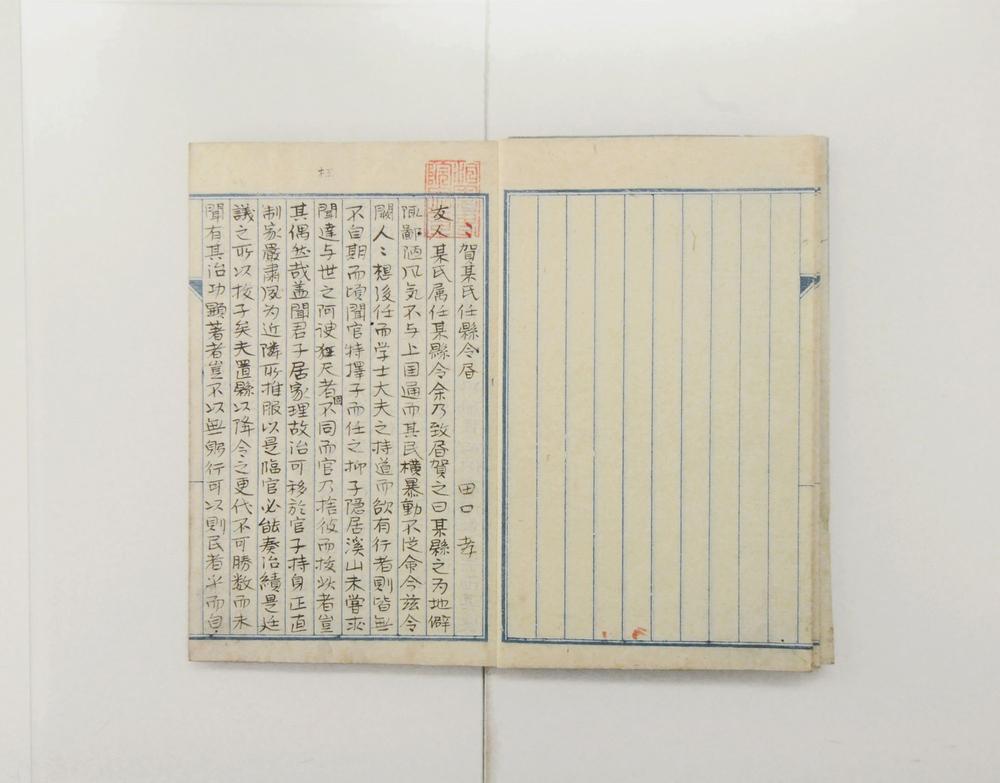 賀某氏任縣令啓 田口 孝
友人某氏属任某縣令余乃致啓賀之曰某縣之为地僻
陬鄙陋风気不与上国通而其民横暴動不从命今茲令
闕人〻想後任而学士大夫之持道而欲有行者則皆無
不自期而頃聞官特擇子而任之抑子隠居溪山未嘗求
聞達与世之阿諛狂尺者不同而官乃捨彼而抜此者豈
其偶然哉盖聞君子居家理故治可移於官子持身正直
制家嚴肅夙为近隣所推服以是臨官必能奏治績是廷
議之所以抜子矣夫置縣以降令之更代不可勝数而未
聞有其治功顕著者豈不以無躬行可以則民者乎而自
枉